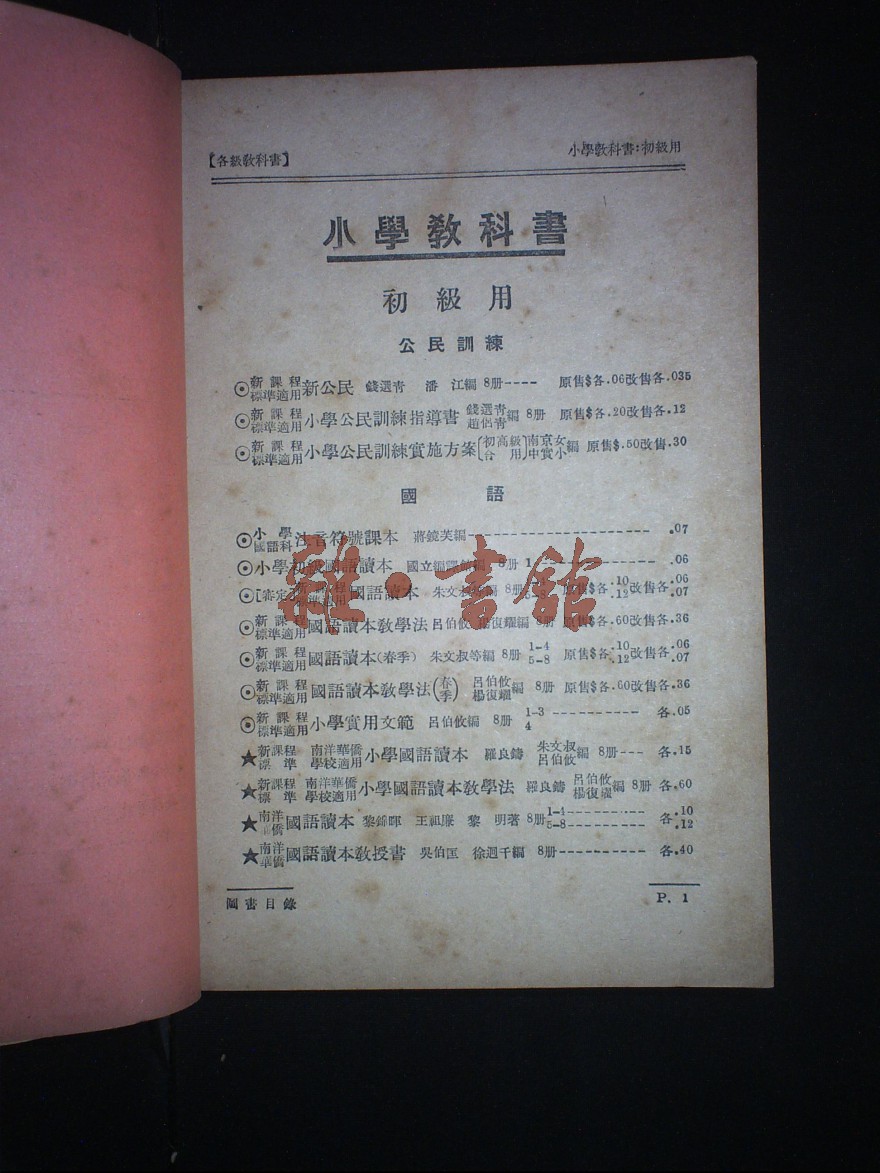 【各級教科書】 小學教科書:初級用
小學教科書
初級用
公民訓練
⊙新課程標準適用新公民 錢選青 潘江編 8册---- 原售$各.06改售各.035
⊙新課程標準適用小學公民訓練指導書 錢選青 趙侶青編 8册 原售$各.20改售各.12
⊙新課程標準適用小學公民訓練實施方案(初高級合用)南京女中實小編 原售$.50改售.30
國語
⊙小學國語科注音符號課本 蔣鏡芙編---------------------- .07
⊙小學初級國語讀本 國立編譯館編 8册 1------------- .06
⊙[審定]新課程標準適用國語讀本 朱文叔等編 8册 1-4 5-8 原售$各.10 .12改售各.06 .07
⊙新課程標準適用國語讀本教學法 呂伯攸 楊復耀編 8册 原售$各.60改售各.36
⊙新課程標準適用國語讀本(春季) 朱文叔等編 8册 1-4 5-8 原售$各.10 .12改售各.06 .07
⊙新課程標準適用國語讀本教學法(春季) 呂伯攸 楊復耀編 8册 原售$各.60改售各.36
⊙新課程標準適用小學實用文範 呂伯攸編 8册 1-3 4 ---------- 各.05
★新課程標準 南洋華僑學校適用小學國語讀本 羅良鑄 朱文叔 呂伯攸編 8册--- 各.15
★新課程標準 南洋華僑學校適用小學國語讀本教學法 羅良鑄 呂伯攸 楊復耀編 8册 各.60
★南洋華僑國語讀本 黎錦暉 王祖廉 黎明著 8册 1-4 5-8--------- 各.10 .12
★南洋華僑國語讀本教授書 吳伯匡 徐迥千編 8册---------- 各.40
圖書目錄 P. 1
雜·書館